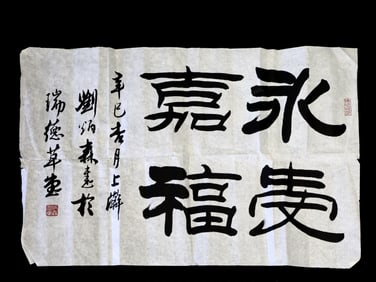 永受
嘉福
辛巳杏月上澣
劉炳森書於
瑞德草堂